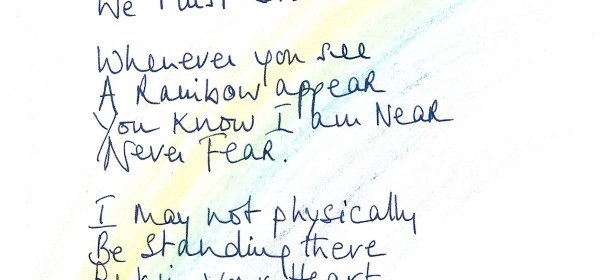 We
Whenever you see
A Rainbow appear
You Know I am Near
Never Fear.
I may not physically
Be Standing there
your Heart